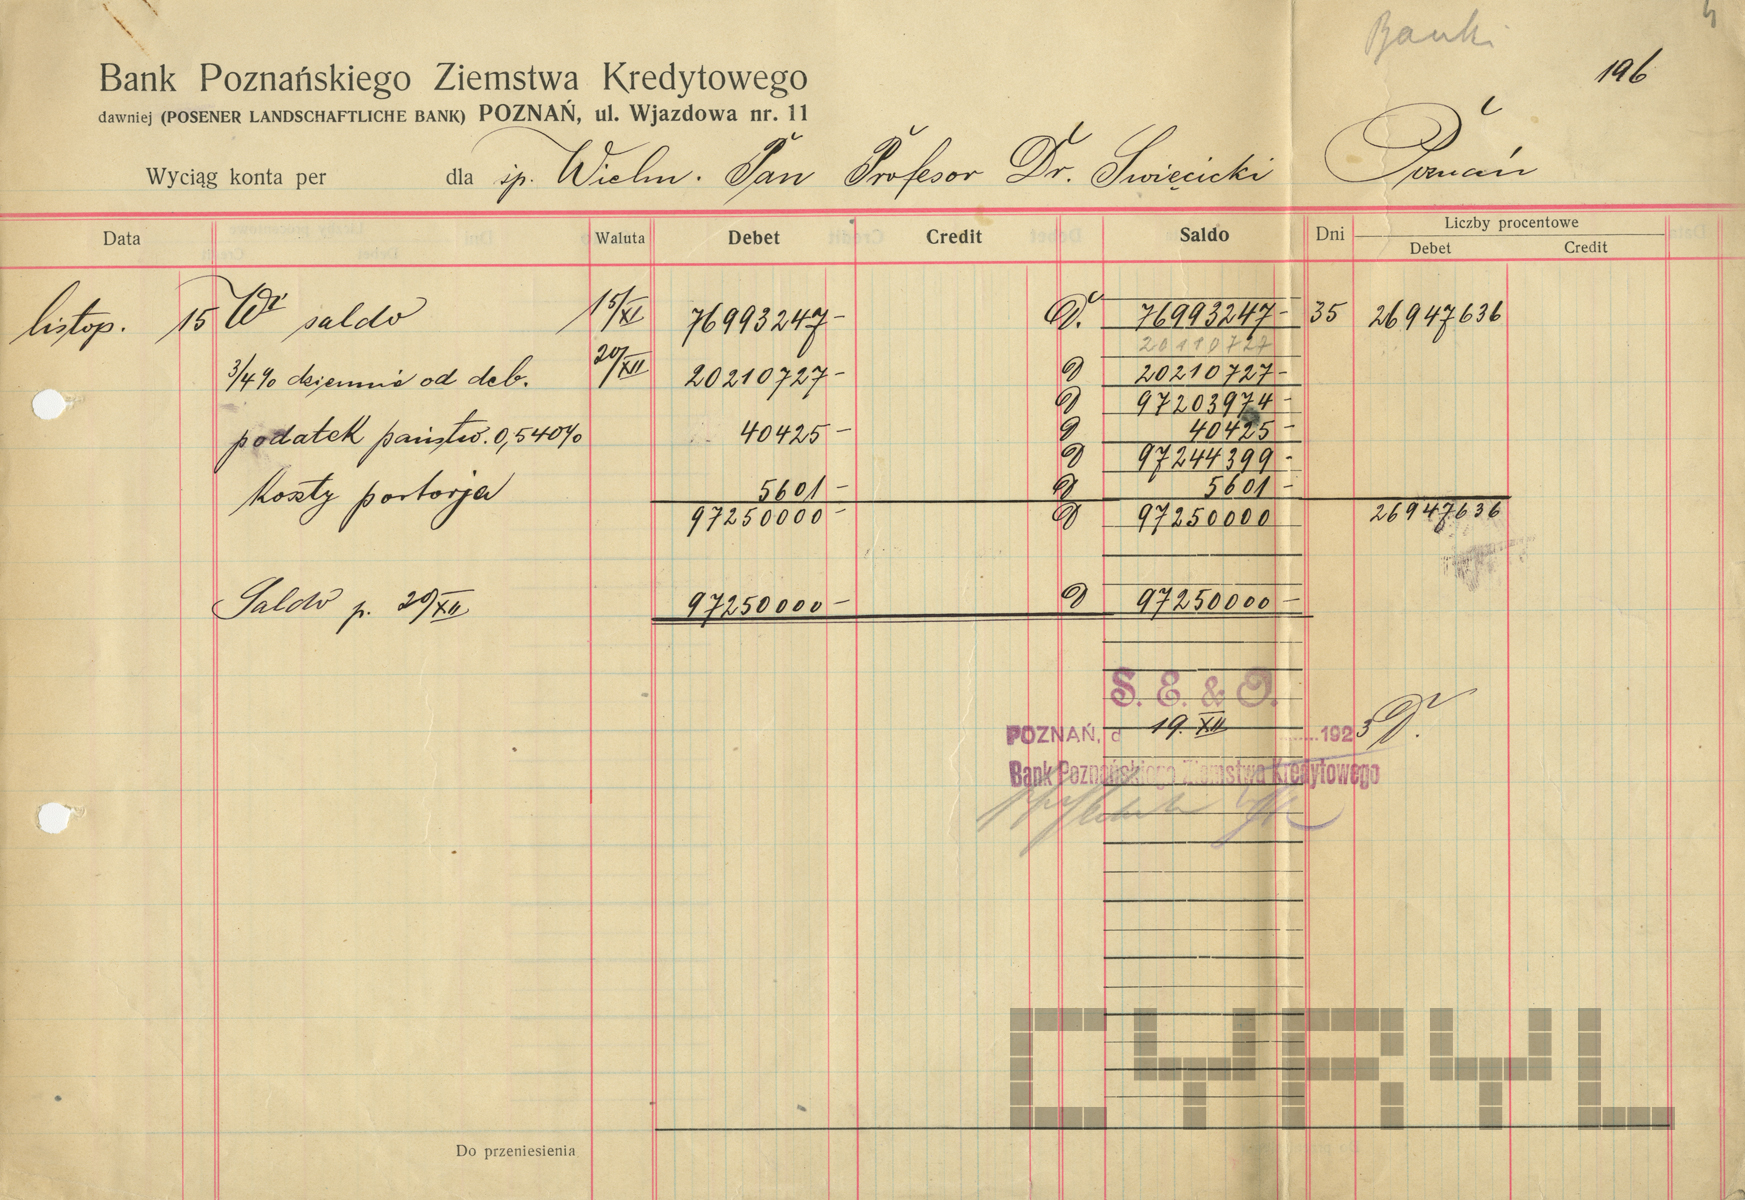 Banki
196
Bank Poznańskiego Ziemstwa Kredytowego
dawniej (POSENER LANDSCHAFTLICHE BANK) POZNAŃ, ul. Wjazdowa nr. 11
Wyciąg konta per dla śp. Wielm. Pan Profesor Dr. Święcicki Poznań
Data Waluta Debet Credit Saldo Dni Liczby procentowe
Debet Credit
listop. 15 saldo 15/XI 76993247- D. 76993247- 35 26947636
20110727
3/4% dziennie od deb. 20/XII 20210727- D 20210727-
D 97203974-
podatek państw. 0,540% 40425- D 40425-
D 97244399-
koszty portorja 5601- D 5601-
97250000- D 97250000 26947636
Saldo p. 20/XII 97250000- D 97250000-
S. E. & O.
POZNAŃ, d 19. XII 1923
Bank Poznańskiego Ziemstwa Kredytowego
Do przeniesienia
CYRYL